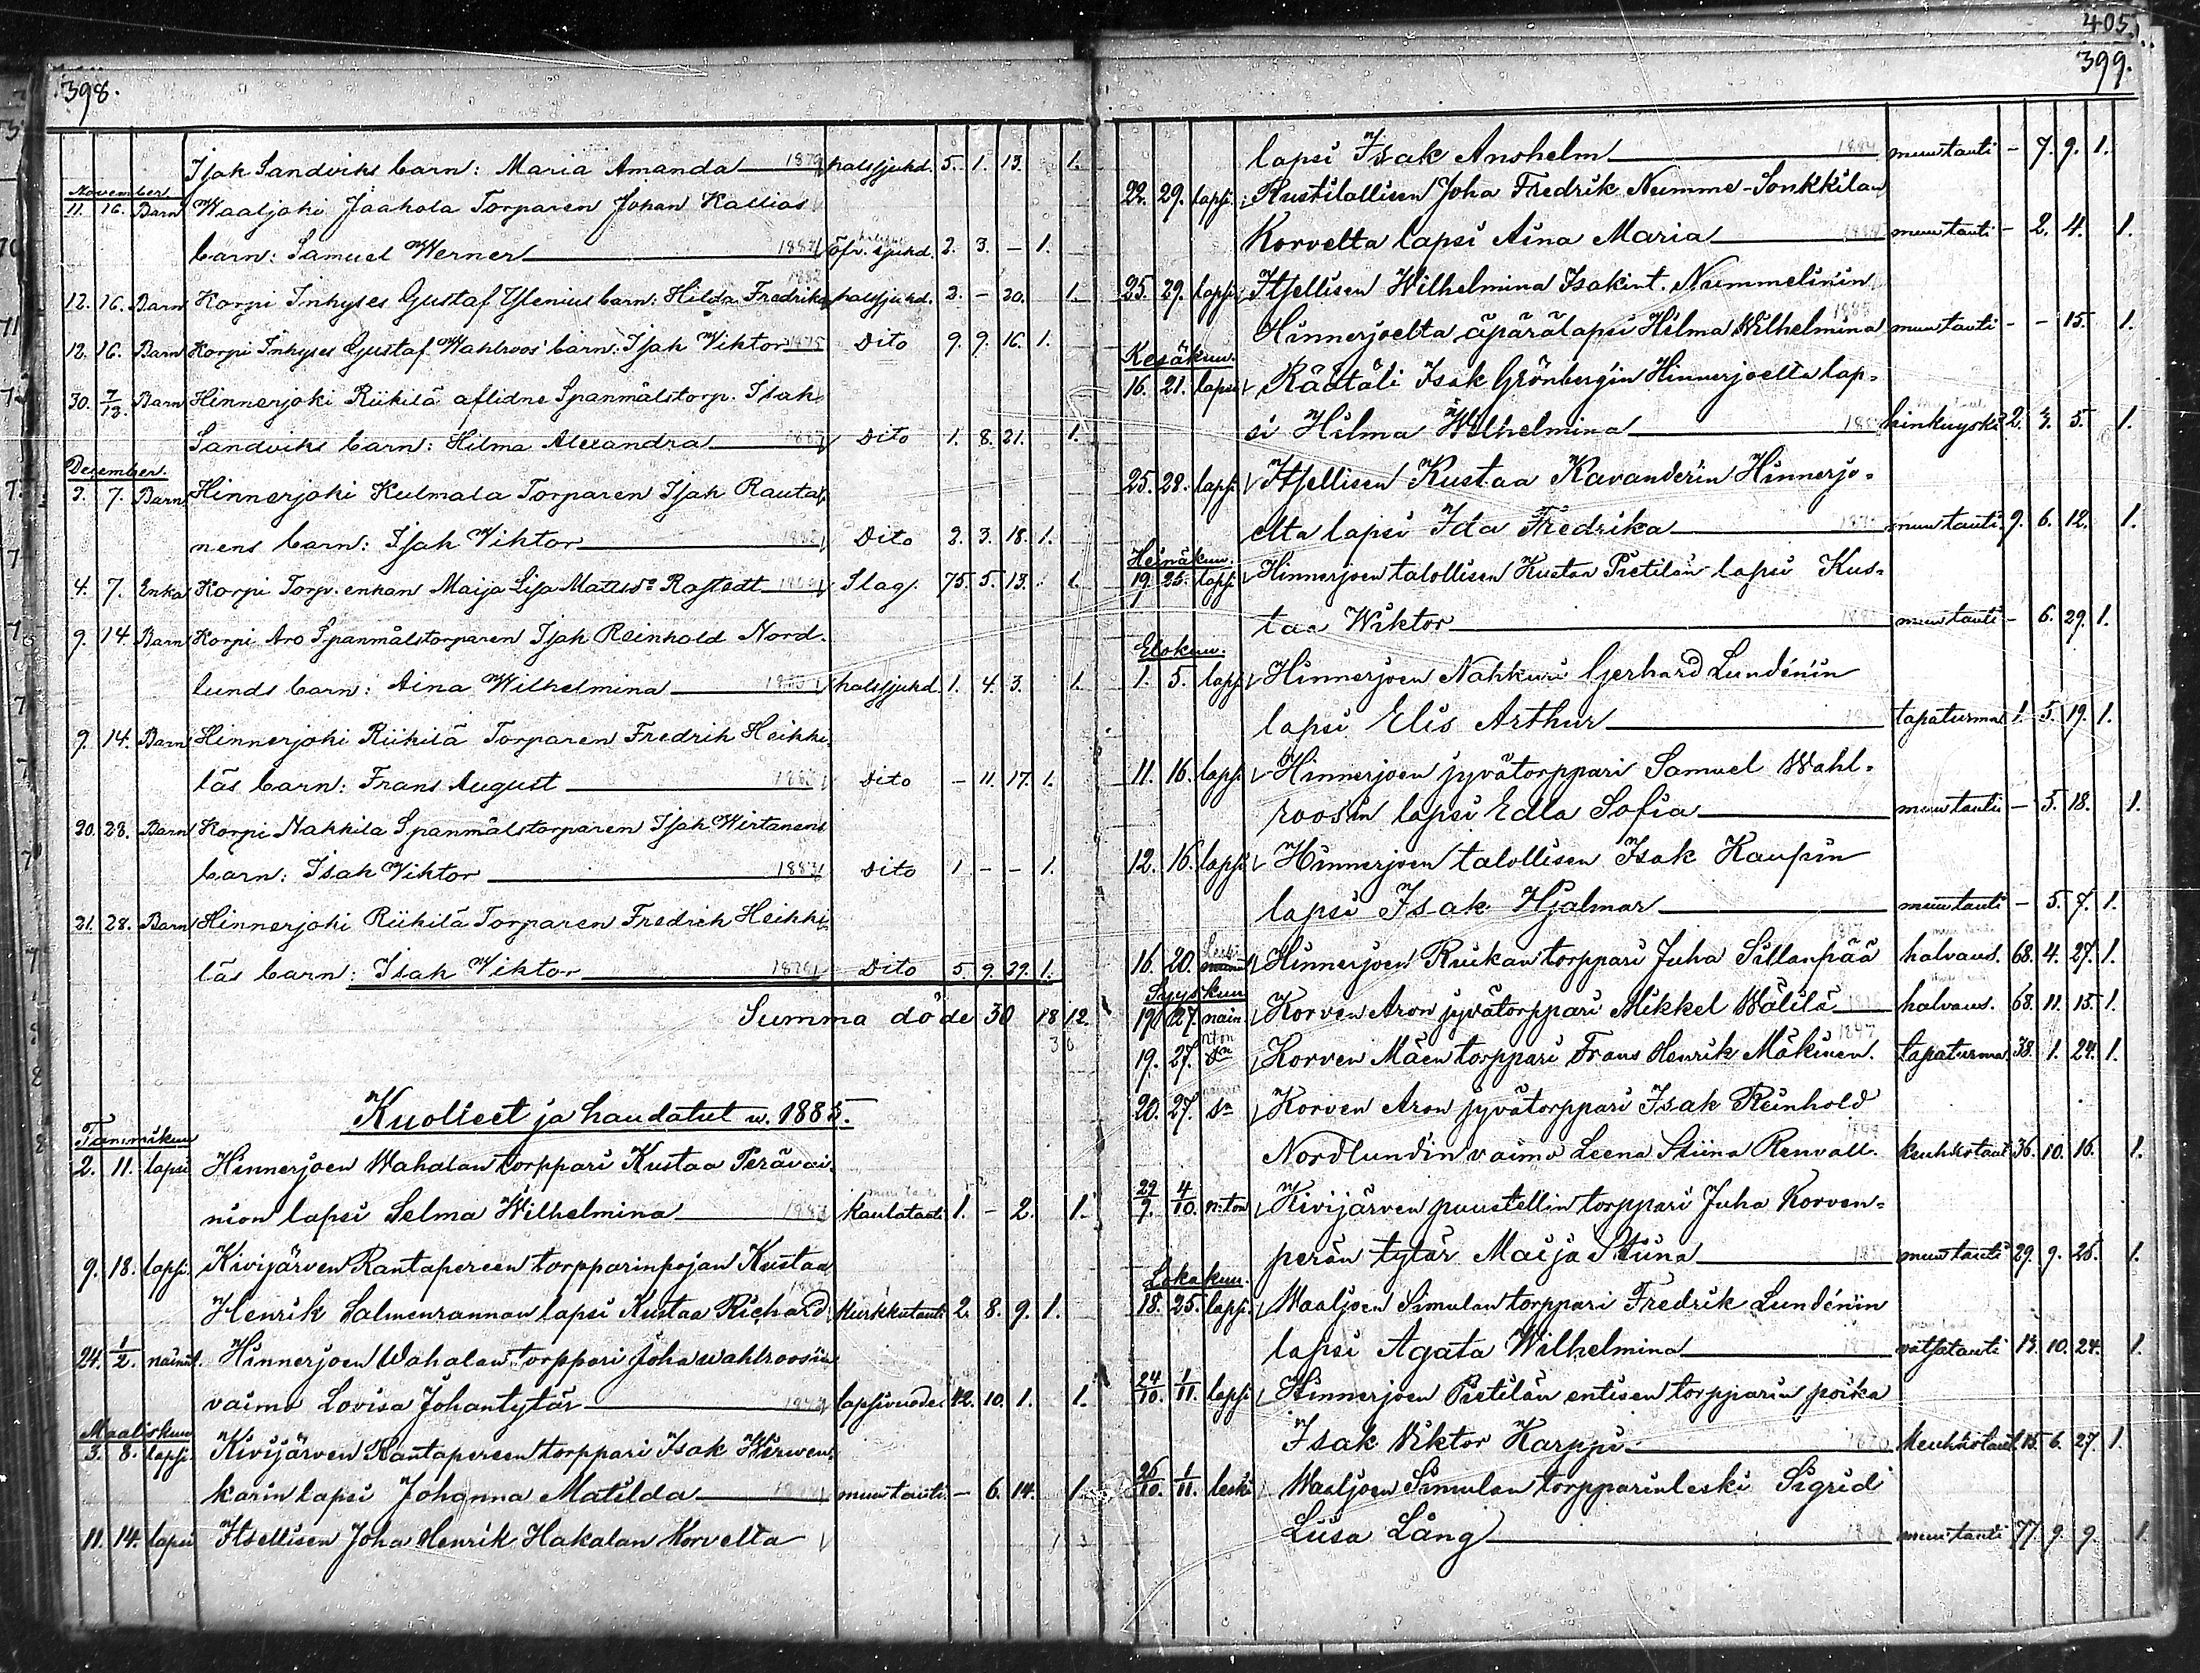 398.
Isak Sandviks barn: Maria Amanda 1879 halssjukd. 5. 1. 13. 1.
November
11. 16. Barn Waaljoki Jaakola Torparen Johan Kallios
barn: Samuel Werner 1882 öfr. sjukd. 2. 3. – 1.
1882
12. 16. Barn Korpi Inhyses Gustaf Ylenius barn: Hilda Fredrika halssjukd. 2. – 20. 1.
12. 16. Barn Korpi Inhyses Gustaf Wahlroos' barn: Isak Viktor 1875 Dito 9. 9. 16. 1.
30. 7/12. Barn Hinnerjoki Riikilä aflidne Spanmålstorp. Isak
Sandviks barn: Hilma Alexandra 1883 Dito 1. 8. 21. 1.
December.
3. 7. Barn Hinnerjoki Kulmala Torparen Isak Rauta-
nens barn: Isak Viktor 1882 Dito 2. 3. 18. 1.
4. 7. Enka Korpi Torp. enkan Maija Lisa Mattsdr Rostedt Slag. 75. 5. 13. 1.
9. 14. Barn Korpi Aro Spanmålstorparen Isak Reinhold Nord-
lunds barn: Aina Wilhelmina halssjukd. 1. 4. 3. 1.
9. 14. Barn Hinnerjoki Riikilä Torparen Fredrik Heikki-
läs barn: Frans August 1883 Dito – 11. 17. 1.
20. 28. Barn Korpi Nakkila Spanmålstorparen Isak Wirtanens
barn: Isak Viktor 1883 Dito 1 – – 1.
21. 28. Barn Hinnerjoki Riikilä Torparen Fredrik Heikki-
läs barn: Isak Viktor 1879 Dito 5. 9. 29. 1.
Summa döde 30 18 12.
30
Kuolleet ja haudatut v. 1885.
Tammikuu
2. 11. lapsi Hinnerjoen Wahalan torppari Kustaa Perävai-
nion lapsi Selma Wilhelmina kaulatauti 1. – 2. 1.
9. 18. lapsi. Kivijärven Rantapereen torpparinpojan Kustaa
Henrik Salmenrannan lapsi Kustaa Richard kurkkutauti 2. 8. 9. 1.
24. 1/2. nainut. Hinnerjoen Wahalan torppari Joha Wahlroosin
vaimo Lovisa Johantytär lapsivuode 42. 10. 1. 1.
Maaliskuu
3. 8. lapsi Kivijärven Rantapereen torppari Isak Kirwen-
karin lapsi Johanna Matilda muu tauti. – 6. 14. 1.
11. 14. lapsi Itsellisen Joha Henrik Hakalan Korvelta
405.
399.
lapsi Isak Anshelm 1884 muu tauti – 7. 9. 1.
22. 29. lapsi. Rustilallisen Joha Fredrik Numme-Sonkkilan
Korvelta lapsi Aina Maria muu tauti – 2. 4. 1.
25. 29. lapsi Itsellisen Wilhelmina Isakint. Nummelinin
1885
Hinnerjoelta äpärälapsi Hilma Wilhelmina muu tauti – – 15. 1.
Kesäkuu.
16. 21. lapsi Räätäli Isak Grönbergin Hinnerjoelta lap-
si Hilma Wilhelmina hinkuyskä 2. 3. 5. 1.
25. 28. lapsi Itsellisen Kustaa Kavanderin Hinnerjo-
elta lapsi Ida Fredrika muu tauti. 9. 6. 12. 1.
Heinäkuu.
19. 25. lapsi Hinnerjoen talollisen Kustaa Pietilän lapsi Kus-
taa Wiktor muu tauti – 6. 29. 1.
Elokuu.
1. 5. lapsi Hinnerjoen Nahkuri Gerhard Lundénin
lapsi Elis Arthur tapaturma 1. 5. 19. 1.
11. 16. lapsi Hinnerjoen jyvätorppari Samuel Wahl-
roosin lapsi Edla Sofia muu tauti – 5. 18. 1.
12. 16. lapsi Hinnerjoen talollisen Isak Kaupin
lapsi Isak Hjalmar muu tauti – 5. 7. 1.
16. 20. Leski Hinnerjoen Ruikan torppari Juha Sillanpää halvaus. 68. 4. 27. 1.
Syyskuu
19. 27. nain Korven Aron jyvätorppari Mikkel Wälilä halvaus. 68. 11. 15. 1.
1847
19. 27. Korven Mäen torppari Frans Henrik Mäkinen. tapaturma 38. 1. 24. 1.
20. 27. Korven Aron jyvätorppari Isak Reinhold
Nordlundin vaimo Leena Stiina Renvall. keuhkotauti 36. 10. 16. 1.
29/9. 4/10. n:ton Kivijärven puustellin torppari Juha Korven-
perän tytär Maija Stiina muu tauti 29. 9. 25. 1.
Lokakuu.
18. 25. lapsi. Waaljoen Simulan torppari Fredrik Lundénin
lapsi Agata Wilhelmina vatsatauti 13. 10. 24. 1.
24/10. 1/11. lapsi Hinnerjoen Pietilän entisen torpparin poika
Isak Viktor Karppi 1870 keuhkotaut. 15. 6. 27. 1.
26/10. 1/11. leski Waaljoen Simulan torpparinleski Sigrid
Liisa Lång muu tauti 77. 9. 9. 1.